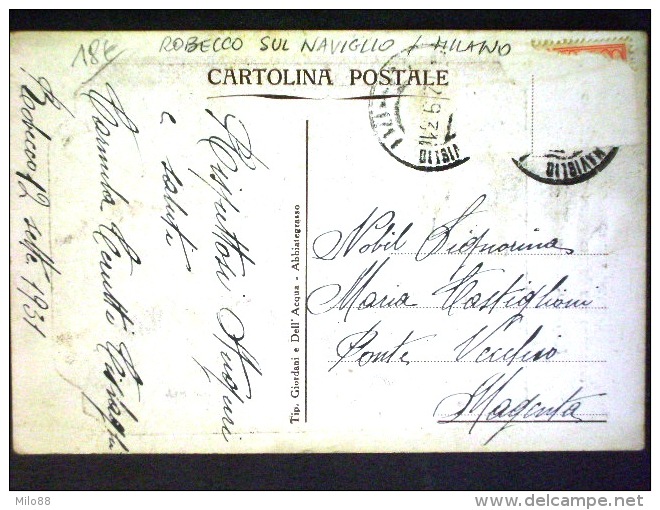 18€
ROBECCO SUL NAVIGLIO / MILANO
CARTOLINA POSTALE
Rispettosi Auguri
e saluti
Carmela Cerutti
Robecco 12 sette 1931
Tip. Giordani e Dell'Acqua - Abbiategrasso
VIGLIO
NAVIGLIO
Nobil Signorina
Maria Castiglioni
Ponte Vecchio
Magenta
Milo88
www.delcampe.net